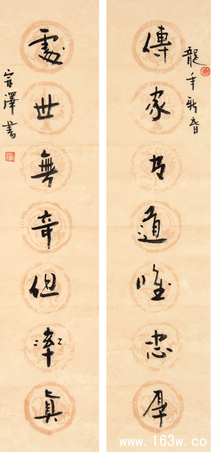 龍年新春
傳家有道唯忠厚
處世無奇但率真
澤書
www.163w.co